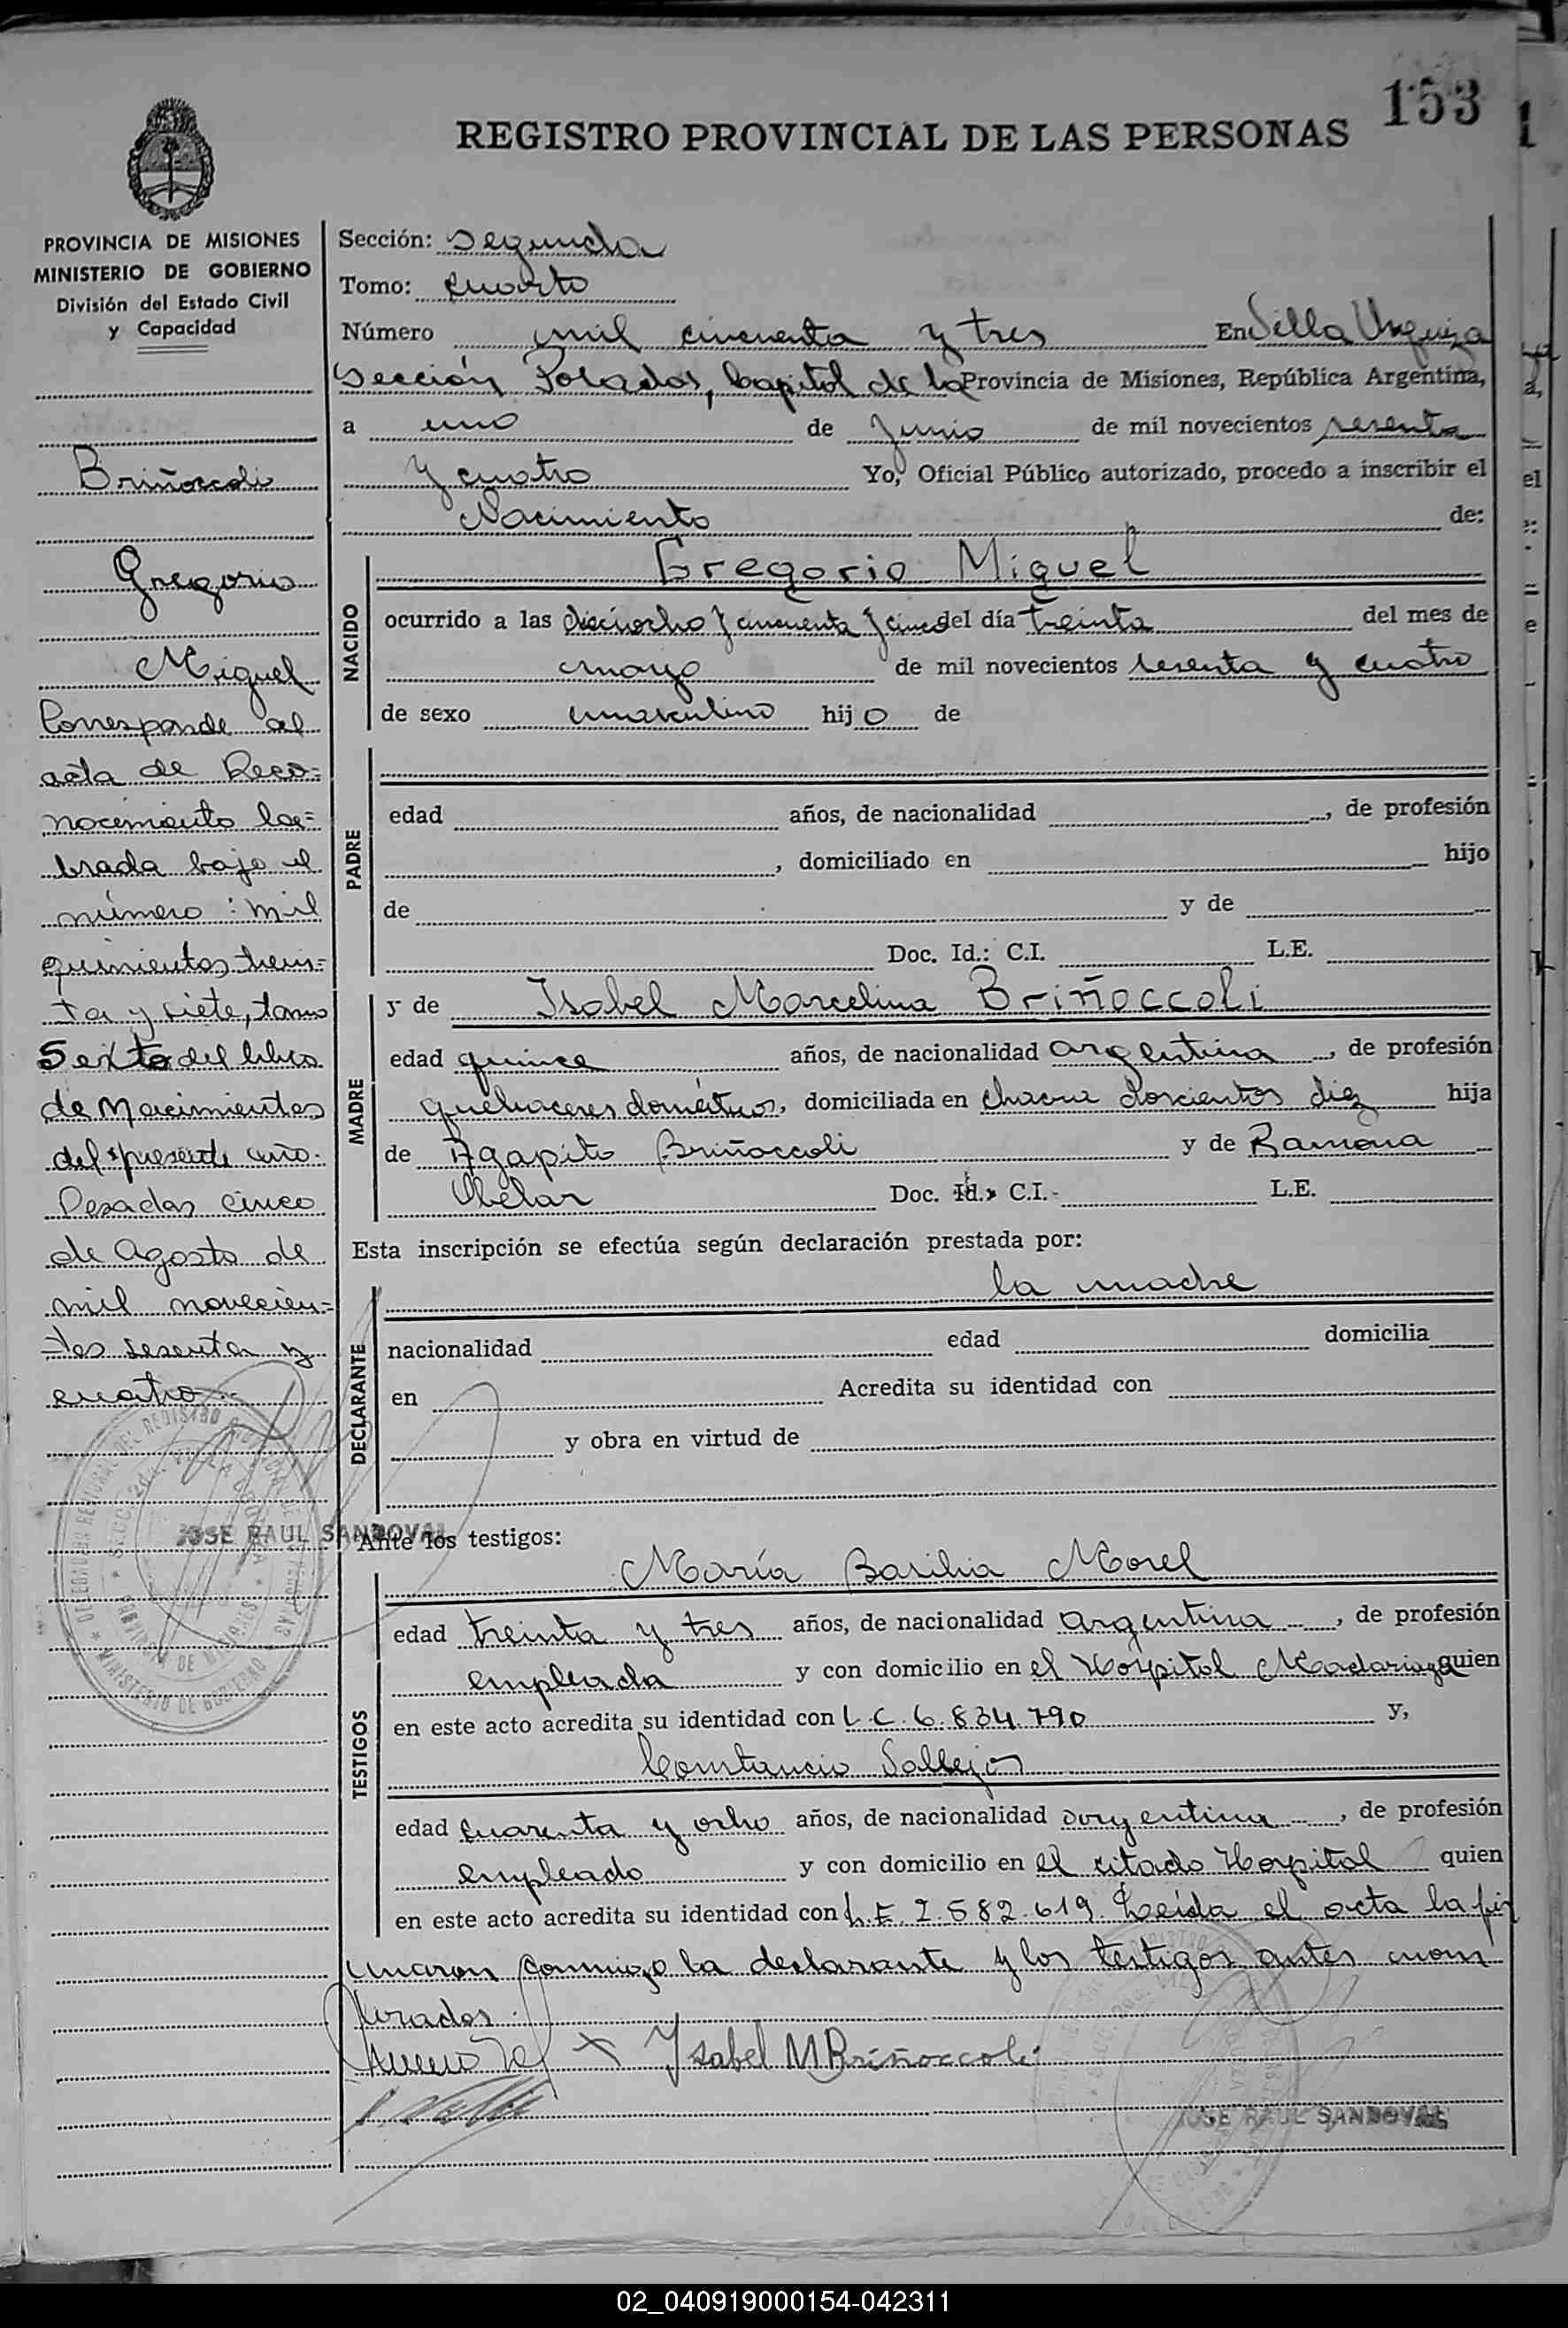 153
REGISTRO PROVINCIAL DE LAS PERSONAS
PROVINCIA DE MISIONES
MINISTERIO DE GOBIERNO
División del Estado Civil
y Capacidad
Briñoccoli
Gregorio
Miguel
Corresponde al
acta de Reco-
nocimiento la-
brada bajo el
número: mil
quinientos trein-
ta y siete, tomo
Sexto del libro
de Nacimientos
del presente año.
Posadas cinco
de Agosto de
mil novecien-
tos sesenta y
cuatro.
JOSE RAUL SANDOVAL
Sección: segunda
Tomo: cuarto
Número mil cincuenta y tres En Villa Urquiza
Sección Posadas, Capital de la Provincia de Misiones, República Argentina,
a uno de Junio de mil novecientos sesenta
y cuatro Yo, Oficial Público autorizado, procedo a inscribir el
Nacimiento de:
NACIDO
Gregorio Miguel
ocurrido a las dieciocho y cincuenta y cinco del día treinta del mes de
mayo de mil novecientos sesenta y cuatro
de sexo masculino hijo de
PADRE
edad años, de nacionalidad , de profesión
, domiciliado en hijo
de y de
Doc. Id.: C.I. L.E.
MADRE
y de Isabel Marcelina Briñoccoli
edad quince años, de nacionalidad argentina, de profesión
quehaceres domésticos, domiciliada en chacra doscientos diez hija
de Agapito Briñoccoli y de Ramona
Doc. Id.: C.I. L.E.
Esta inscripción se efectúa según declaración prestada por:
la madre
DECLARANTE
nacionalidad edad domicilia
en Acredita su identidad con
y obra en virtud de
Ante los testigos:
TESTIGOS
María Basilia Morel
edad treinta y tres años, de nacionalidad argentina, de profesión
empleada y con domicilio en el Hospital Madariaga quien
en este acto acredita su identidad con L.C. 6.834.790 y,
Constancio Vallejos
edad cuarenta y ocho años, de nacionalidad argentina, de profesión
empleado y con domicilio en el citado Hospital quien
en este acto acredita su identidad con L.E. 2.582.619. Leída el acta la fir
maron conmigo la declarante y los testigos antes nom
brados.
Ysabel M Briñoccoli
JOSE RAUL SANDOVAL
02_040919000154-042311